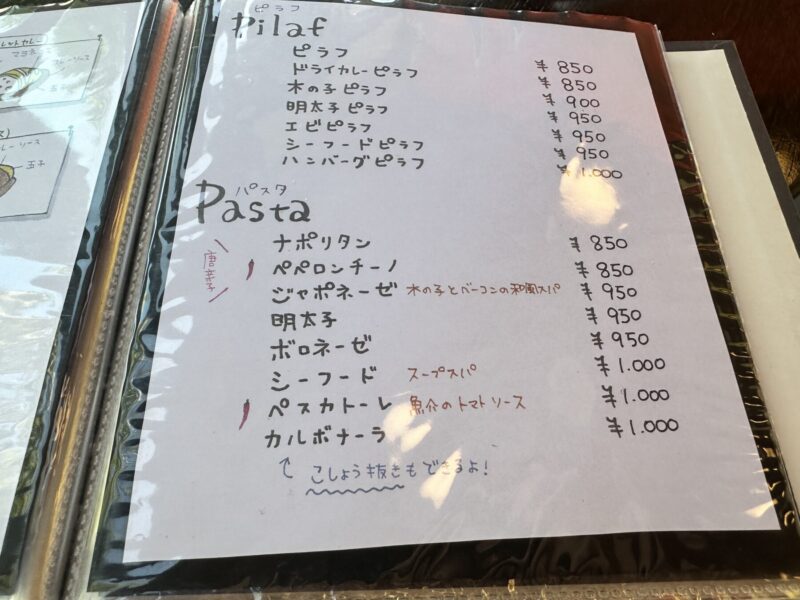 ピラフ
Pilaf
ピラフ ¥850
ドライカレーピラフ ¥850
木の子ピラフ ¥900
明太子ピラフ ¥950
エビピラフ ¥950
シーフードピラフ ¥950
ハンバーグピラフ ¥1.000
パスタ
Pasta
唐辛子
ナポリタン ¥850
ペペロンチーノ ¥850
ジャポネーゼ 木の子とベーコンの和風スパ ¥950
明太子 ¥950
ボロネーゼ ¥950
シーフード スープスパ ¥1.000
ペスカトーレ 魚介のトマトソース ¥1.000
カルボナーラ ¥1.000
こしょう抜きもできるよ!
マヨネ
レーソース
玉子